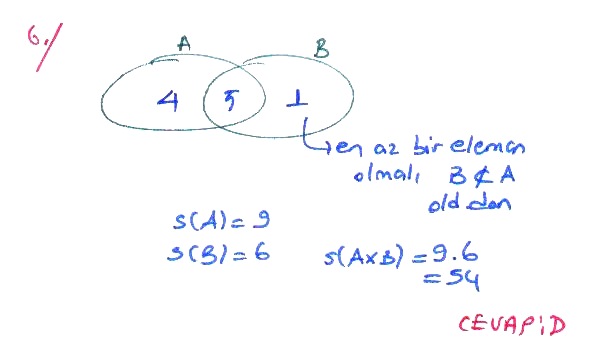 6./
A B
4 5 1
en az bir eleman
olmalı B ⊄ A
old.dan
s(A) = 9
s(B) = 6 s(A×B) = 9.6
= 54
CEVAP: D